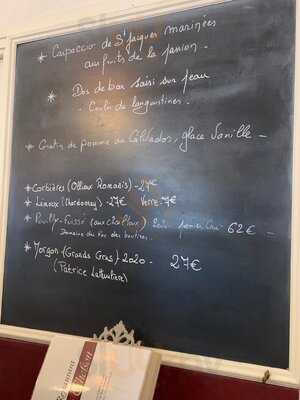 * Carpaccio de St Jacques marinées
aux fruits de la passion.
* Dos de bar saisi sur peau
- Coulis de langoustines.
* Gratin de pomme au Calvados, glace Vanille -
* Corbières (Ollieux Romanis) - 27€
* Limoux (Chardonnay) - 27€ Verre - 7€
* Pouilly-Fuissé (aux chailloux) 2020 - premier Cru 62€ -
Domaine du
* Morgon (Grands Cras) 2020 - 27€
(Patrice
Restaurant